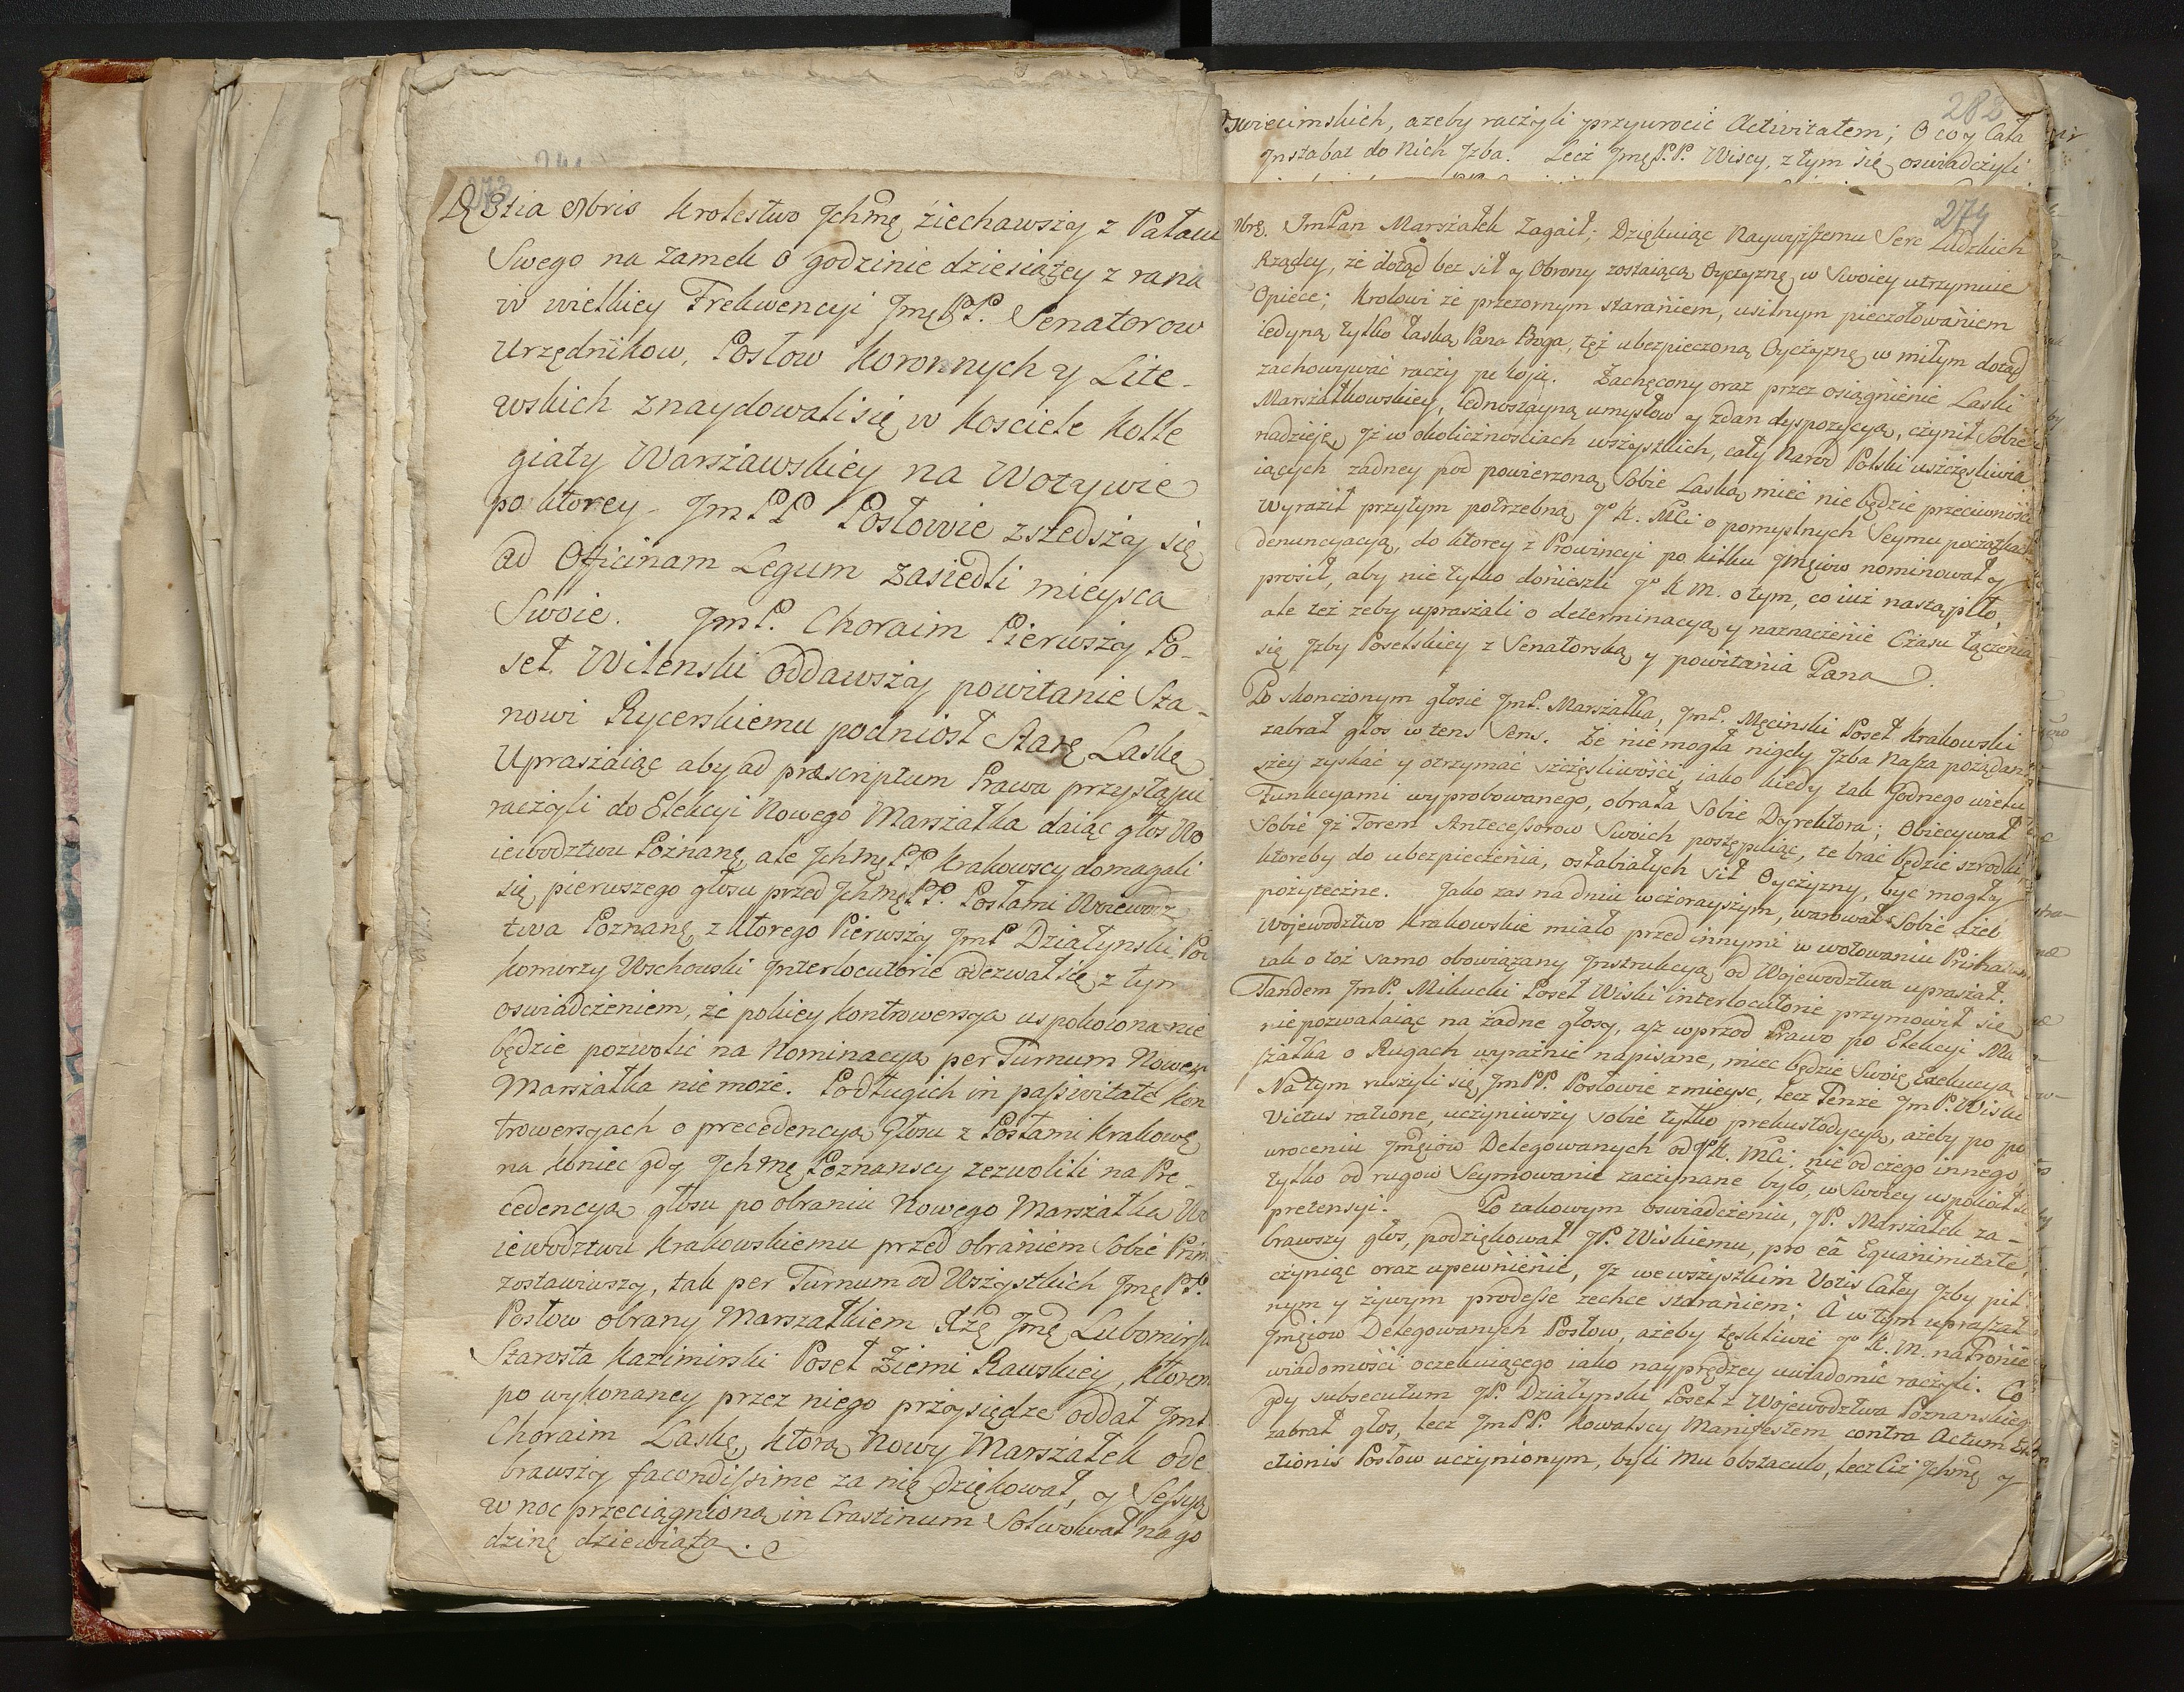 273
D 3tia 8bris Krolestwo Jchmę ziechawszy z Pałacu
Swego na Zamek o godzinie dziesiątey z rana
w wielkiey Frekwencyi Jmę PP. Senatorow
Urzędnikow, Posłow Koronnych y Lite-
wskich znaydowali się w Kosciele Kolle
giaty Warszawskiey na Wotywie
po ktorey Jm PP Posłowie zszedszy się
ad Officinam Legum zasiedli mieysca
Swoie. JmP. Choraim Pierwszy Po-
seł Wilenski oddawszy powitanie Sta-
nowi Rycerskiemu podniosł Starą Laskę
Upraszaiąc aby ad præscriptum Prawa przystąpić
raczyli do Elekcyi Nowego Marszałka daiąc głos Wo
iewodztwu Poznanę, ale Jchmę PP Krakowscy domagali
się pierwszego głosu przed Jchmę PP. Posłami Woiewodz
twa Poznanę z ktorego Pierwszy JmP Działynski Pod
komorzy Wschowski Jnterlocutorie odezwał się z tym
oswiadczeniem, że pokiey kontrowersya uspokoiona nie
będzie pozwolić na Nominacyą per Turnum Nowego
Marszałka nie może. Po długich in passivitate kon
trowersyach o precedencyą Głosu z Posłami Krakowę
na koniec gdy Jchmę Poznanscy zezwolili na Pre-
cedencyą głosu po obraniu Nowego Marszałka Wo
iewodztwu Krakowskiemu przed obraniem Sobie Prim
zostawiwszy, tak per Turnum od Wszystkich Jmę PP.
Posłow obrany Marszałkiem Xżę Jmę Lubomirski
Starosta Kazimirski Poseł Ziemi Rawskiey, ktorem
po wykonaney przez niego przysiędze oddał JmP
Choraim Laskę, ktorą Nowy Marszałek ode
brawszy facondissime za nię dziękował, y Sessyą
w noc przeciągnioną in Crastinum Solwował na go
dzinę dziewiątą.
282
Oswiecimskich, azeby raczyli przywrocić Activitatem; O co y Cała
Jnstabat do Nich Jzba. Lecz Jmę P.P. Wiscy, z tym się oswiadczyli
274
Nrę. JmPan Marszałek Zagaił; Dziękuiąc Naywyższemu Serc Ludzkich
Rządcy, że dotąd bez sił y Obrony zostaiącą Oyczyznę w Swoiey utrzymuie
Opiece; Krolowi że przezornym staraniem, usilnym pieczołowaniem
iedyną tylko łaską Pana Boga, też ubezpieczoną Oyczyznę w miłym dotąd
zachowywać raczy pokoju. Zachęcony oraz przez osiągnienie Laski
Marszałkowskiey, Jednostayną umysłow y zdan dyspozycyą, czynił Sobie
nadzieję, Jż w okolicznościach wszystkich, cały Narod Polski uszczęśliwia
iących zadney pod powierzoną Sobie Laską mieć nie będzie przeciwności
Wyraził przytym potrzebną Jo K. MCi o pomyslnych Seymu początkach
denuncyacyą, do ktorey z Prowincyi po kilku Jmęiow nominował y
prosił, aby nie tylko doniesli Jo K M. o tym, co iuż nastąpiło,
ale też zeby upraszali o determinacyą y naznaczenie Czasu łączenia
się Jzby Poselskiey z Senatorską y powitania Pana.
Po skonczonym głosie JmP. Marszałka, JmP. Męcinski Poseł Krakowski
zabrał głos w tens Sens. Że nie mogła nigdy Jzba Nasza poządan
szey zyskać y otrzymać szczęsliwości, iako kiedy tak Godnego wielu
Funkcyami wyprobowanego, obrała Sobie Dyrektora; Obiecywał
Sobie Jż Torem Antecessorow Swoich postępuiąc, te brać będzie szrodki,
ktoreby do ubezpieczenia, osłabiałych sił Oyczyzny, byc mogły
pożyteczne. Jako zas na dniu wczorayszym, warował Sobie ażeb
Wojewodztwo Krakowskie miało przed innymi w wotowaniu Prima
tak o toż samo obowiązany Jnstrukcyą od Wojewodztwa upraszał.
Tandem JmP. Mikucki Poseł Wiski interlocutorie przymowił się
nie pozwalaiąc na żadne głosy, asz wprzod Prawo po Elekcyi Ma
szałka o Rugach wyraźnie napisane, miec będzie Swoię Exekucyą
Na tym ruszyli się JmPP. Posłowie z mieysc, lecz Tenze JmP. Wiski
Victus ratione, uczyniwszy sobie tylko prekustodycyą, ażeby po po
wroceniu Jmęiow Delegowanych od JoK. MCi: nie od czego innego,
tylko od rugow Seymowanie zaczynane było, w Swoiey uspokoił się
pretensyi. Po takowym oswiadczeniu, JP. Marszałek za-
brawszy głos, podziękował JP. Wiskiemu, pro eâ Equanimitate,
czyniąc oraz upewnienie, Jż we wszystkim Votis Całey Jzby pil
nym y żywym prodesse zechce staraniem; A w tym upraszał
Jmęiow Delegowanych Posłow, ażeby tęskliwie Jo K. M. na Tronie
wiadomości oczekuiącego iako nayprędzey uwiadomić raczyli. Co
gdy subsecutum JP. Działynski Poseł z Wojewodztwa Poznanskieg
zabrał głos, lecz JmPP. Kowalscy Manifestem contra Actum Ele
ctionis Posłow uczynionym, byli Mu obstaculo, lecz Ciż Jchmę y